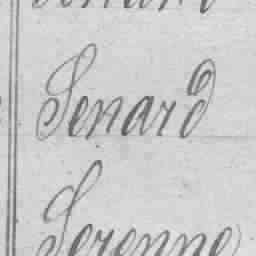 Senard
Serenne